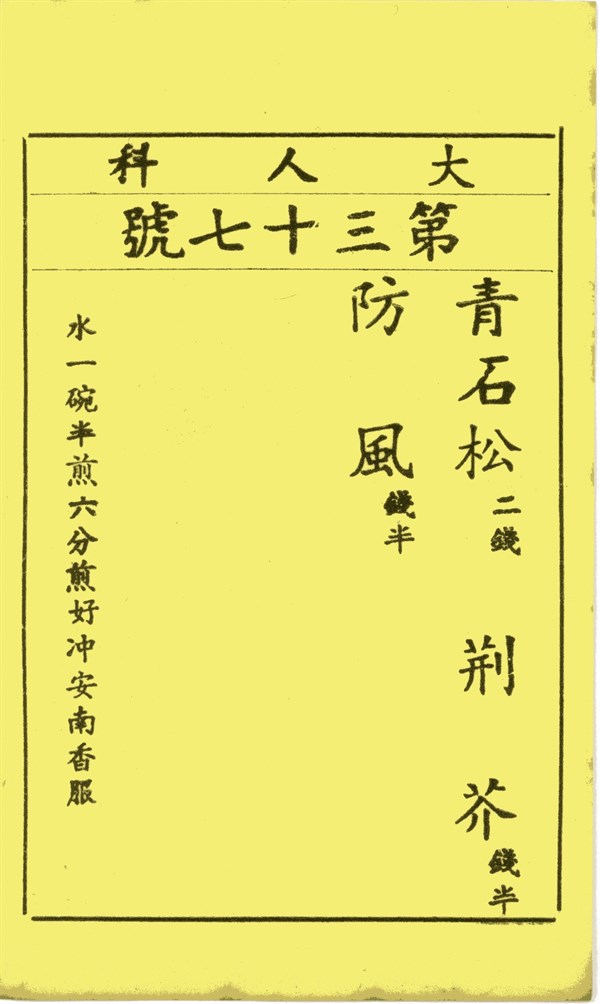 大人科
第三十七號
青石松二錢 荊芥錢半
防風錢半
水一碗半煎六分煎好冲安南香服